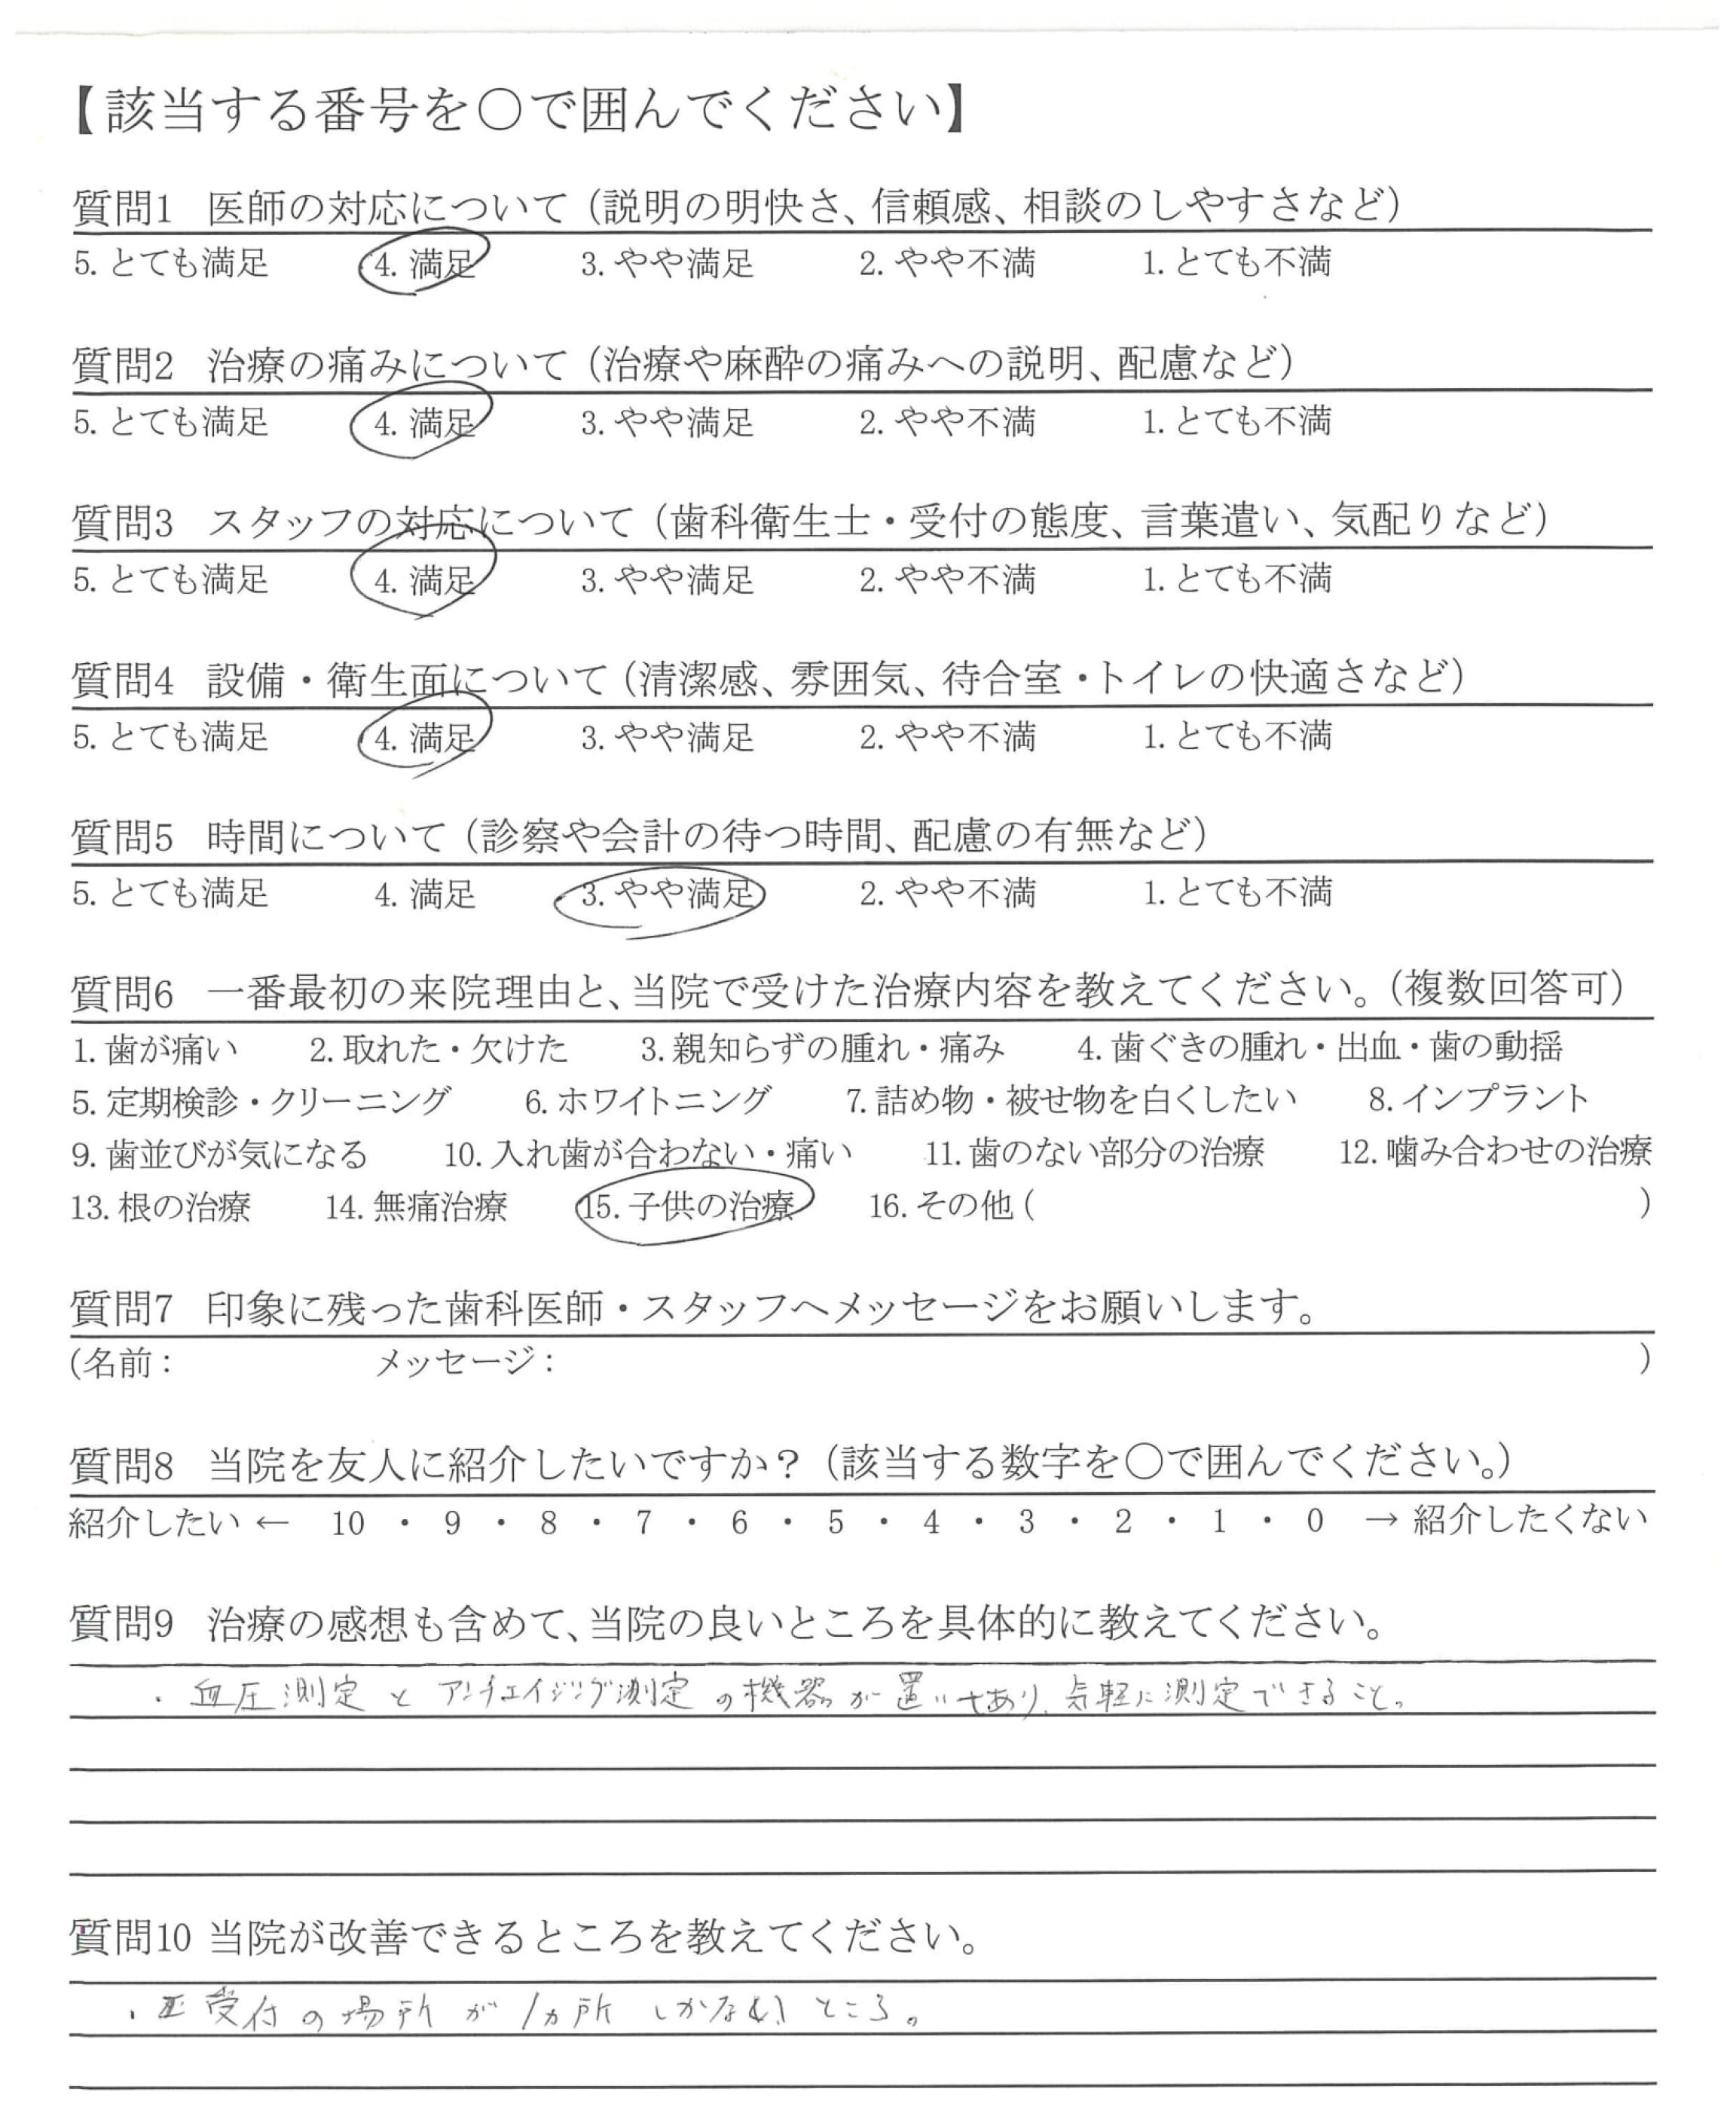 【該当する番号を○で囲んでください】
質問1 医師の対応について（説明の明快さ、信頼感、相談のしやすさなど）
5. とても満足 4. 満足 3. やや満足 2. やや不満 1. とても不満
質問2 治療の痛みについて（治療や麻酔の痛みへの説明、配慮など）
5. とても満足 4. 満足 3. やや満足 2. やや不満 1. とても不満
質問3 スタッフの対応について（歯科衛生士・受付の態度、言葉遣い、気配りなど）
5. とても満足 4. 満足 3. やや満足 2. やや不満 1. とても不満
質問4 設備・衛生面について（清潔感、雰囲気、待合室・トイレの快適さなど）
5. とても満足 4. 満足 3. やや満足 2. やや不満 1. とても不満
質問5 時間について（診察や会計の待つ時間、配慮の有無など）
5. とても満足 4. 満足 3. やや満足 2. やや不満 1. とても不満
質問6 一番最初の来院理由と、当院で受けた治療内容を教えてください。（複数回答可）
1. 歯が痛い 2. 取れた・欠けた 3. 親知らずの腫れ・痛み 4. 歯ぐきの腫れ・出血・歯の動揺
5. 定期検診・クリーニング 6. ホワイトニング 7. 詰め物・被せ物を白くしたい 8. インプラント
9. 歯並びが気になる 10. 入れ歯が合わない・痛い 11. 歯のない部分の治療 12. 噛み合わせの治療
13. 根の治療 14. 無痛治療 15. 子供の治療 16. その他（ ）
質問7 印象に残った歯科医師・スタッフへメッセージをお願いします。
（名前： メッセージ： ）
質問8 当院を友人に紹介したいですか？（該当する数字を○で囲んでください。）
紹介したい ← 10 ・ 9 ・ 8 ・ 7 ・ 6 ・ 5 ・ 4 ・ 3 ・ 2 ・ 1 ・ 0 → 紹介したくない
質問9 治療の感想も含めて、当院の良いところを具体的に教えてください。
・血圧測定とアンチエイジング測定の機器が置いてあり、気軽に測定できること。
質問10 当院が改善できるところを教えてください。
・受付の場所が1ヵ所しかないところ。